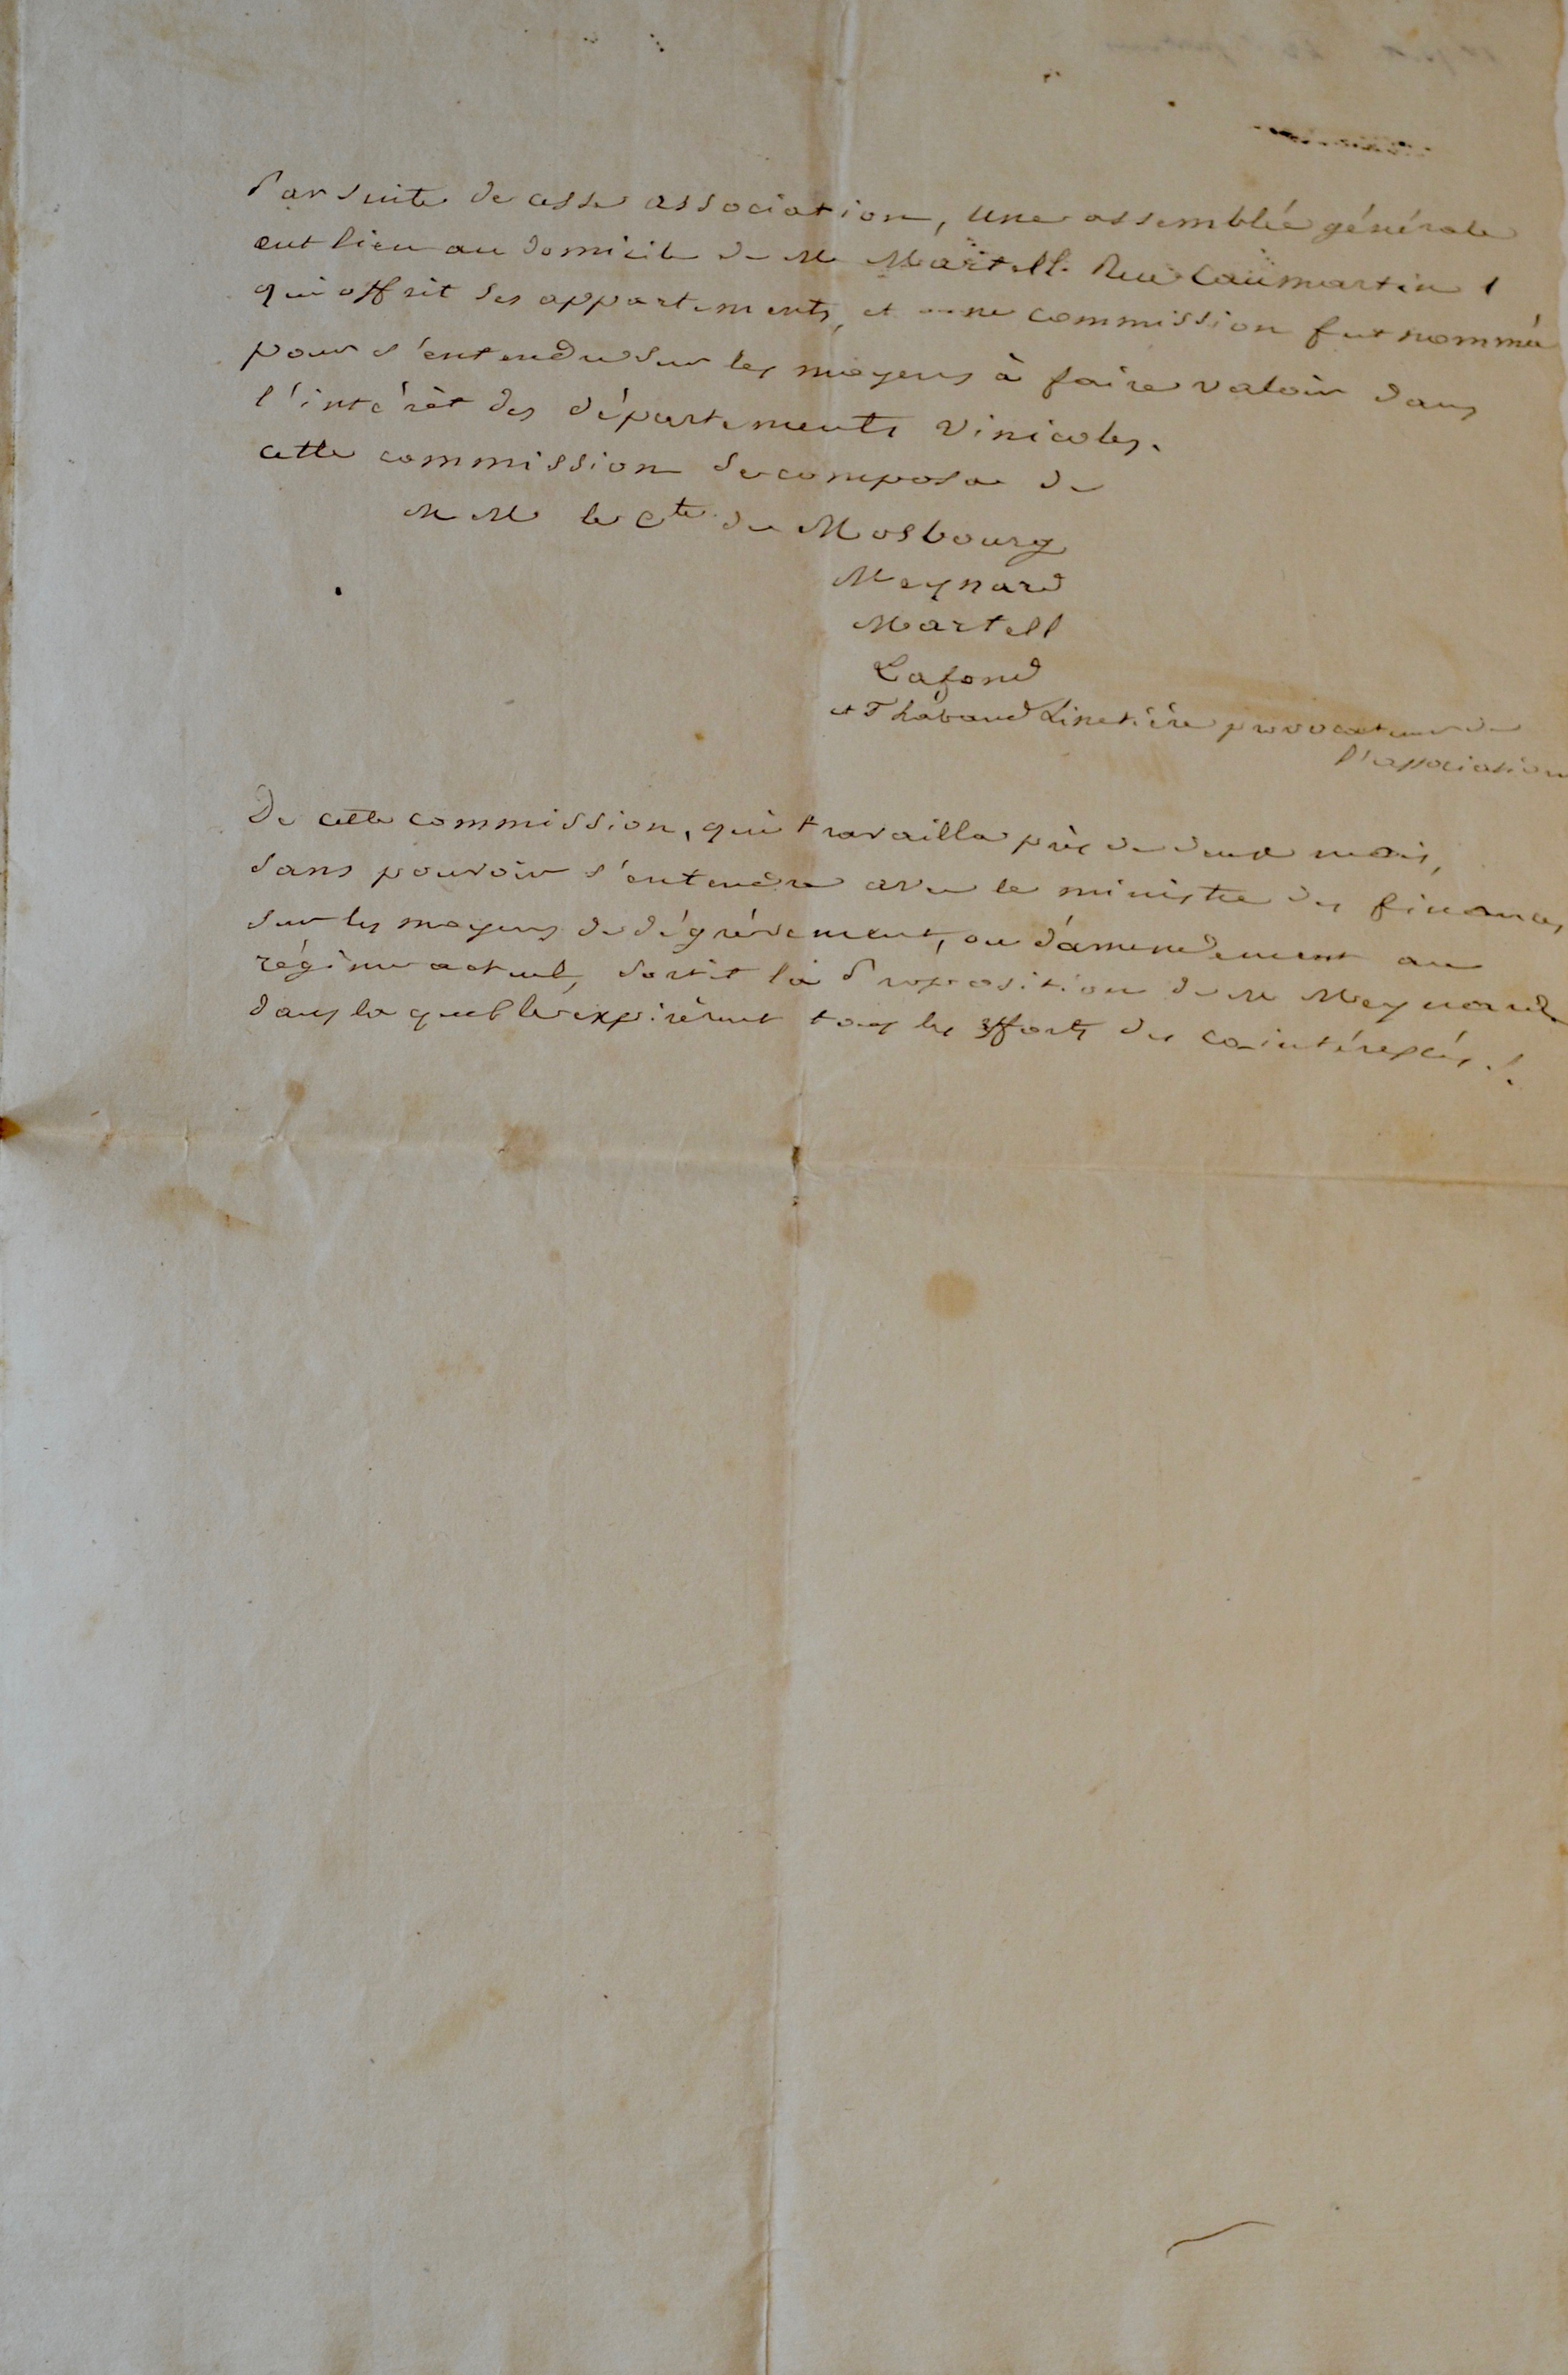 Par suite de cette association, une assemblée générale
eut lieu au domicile de M Martell. Rue Caumartin 1
qui offrit ses appartements, et une commission fut nommée
pour s'entendre sur les moyens à faire valoir dans
l'intérêt des départements vinicoles.
cette commission se composa de
M M le Cte de Mosbourg
Meynard
Martell
Lafond
et Thabaud Linetière provocateur de
l'association
De cette commission, qui travailla près de deux mois,
sans pouvoir s'entendre avec le ministre des finances,
sur les moyens de dégrévement, ou d'amendement au
régime actuel, sortit la Proposition de M Meynard
dans la quelle expirèrent tous les efforts des cointéressés.!